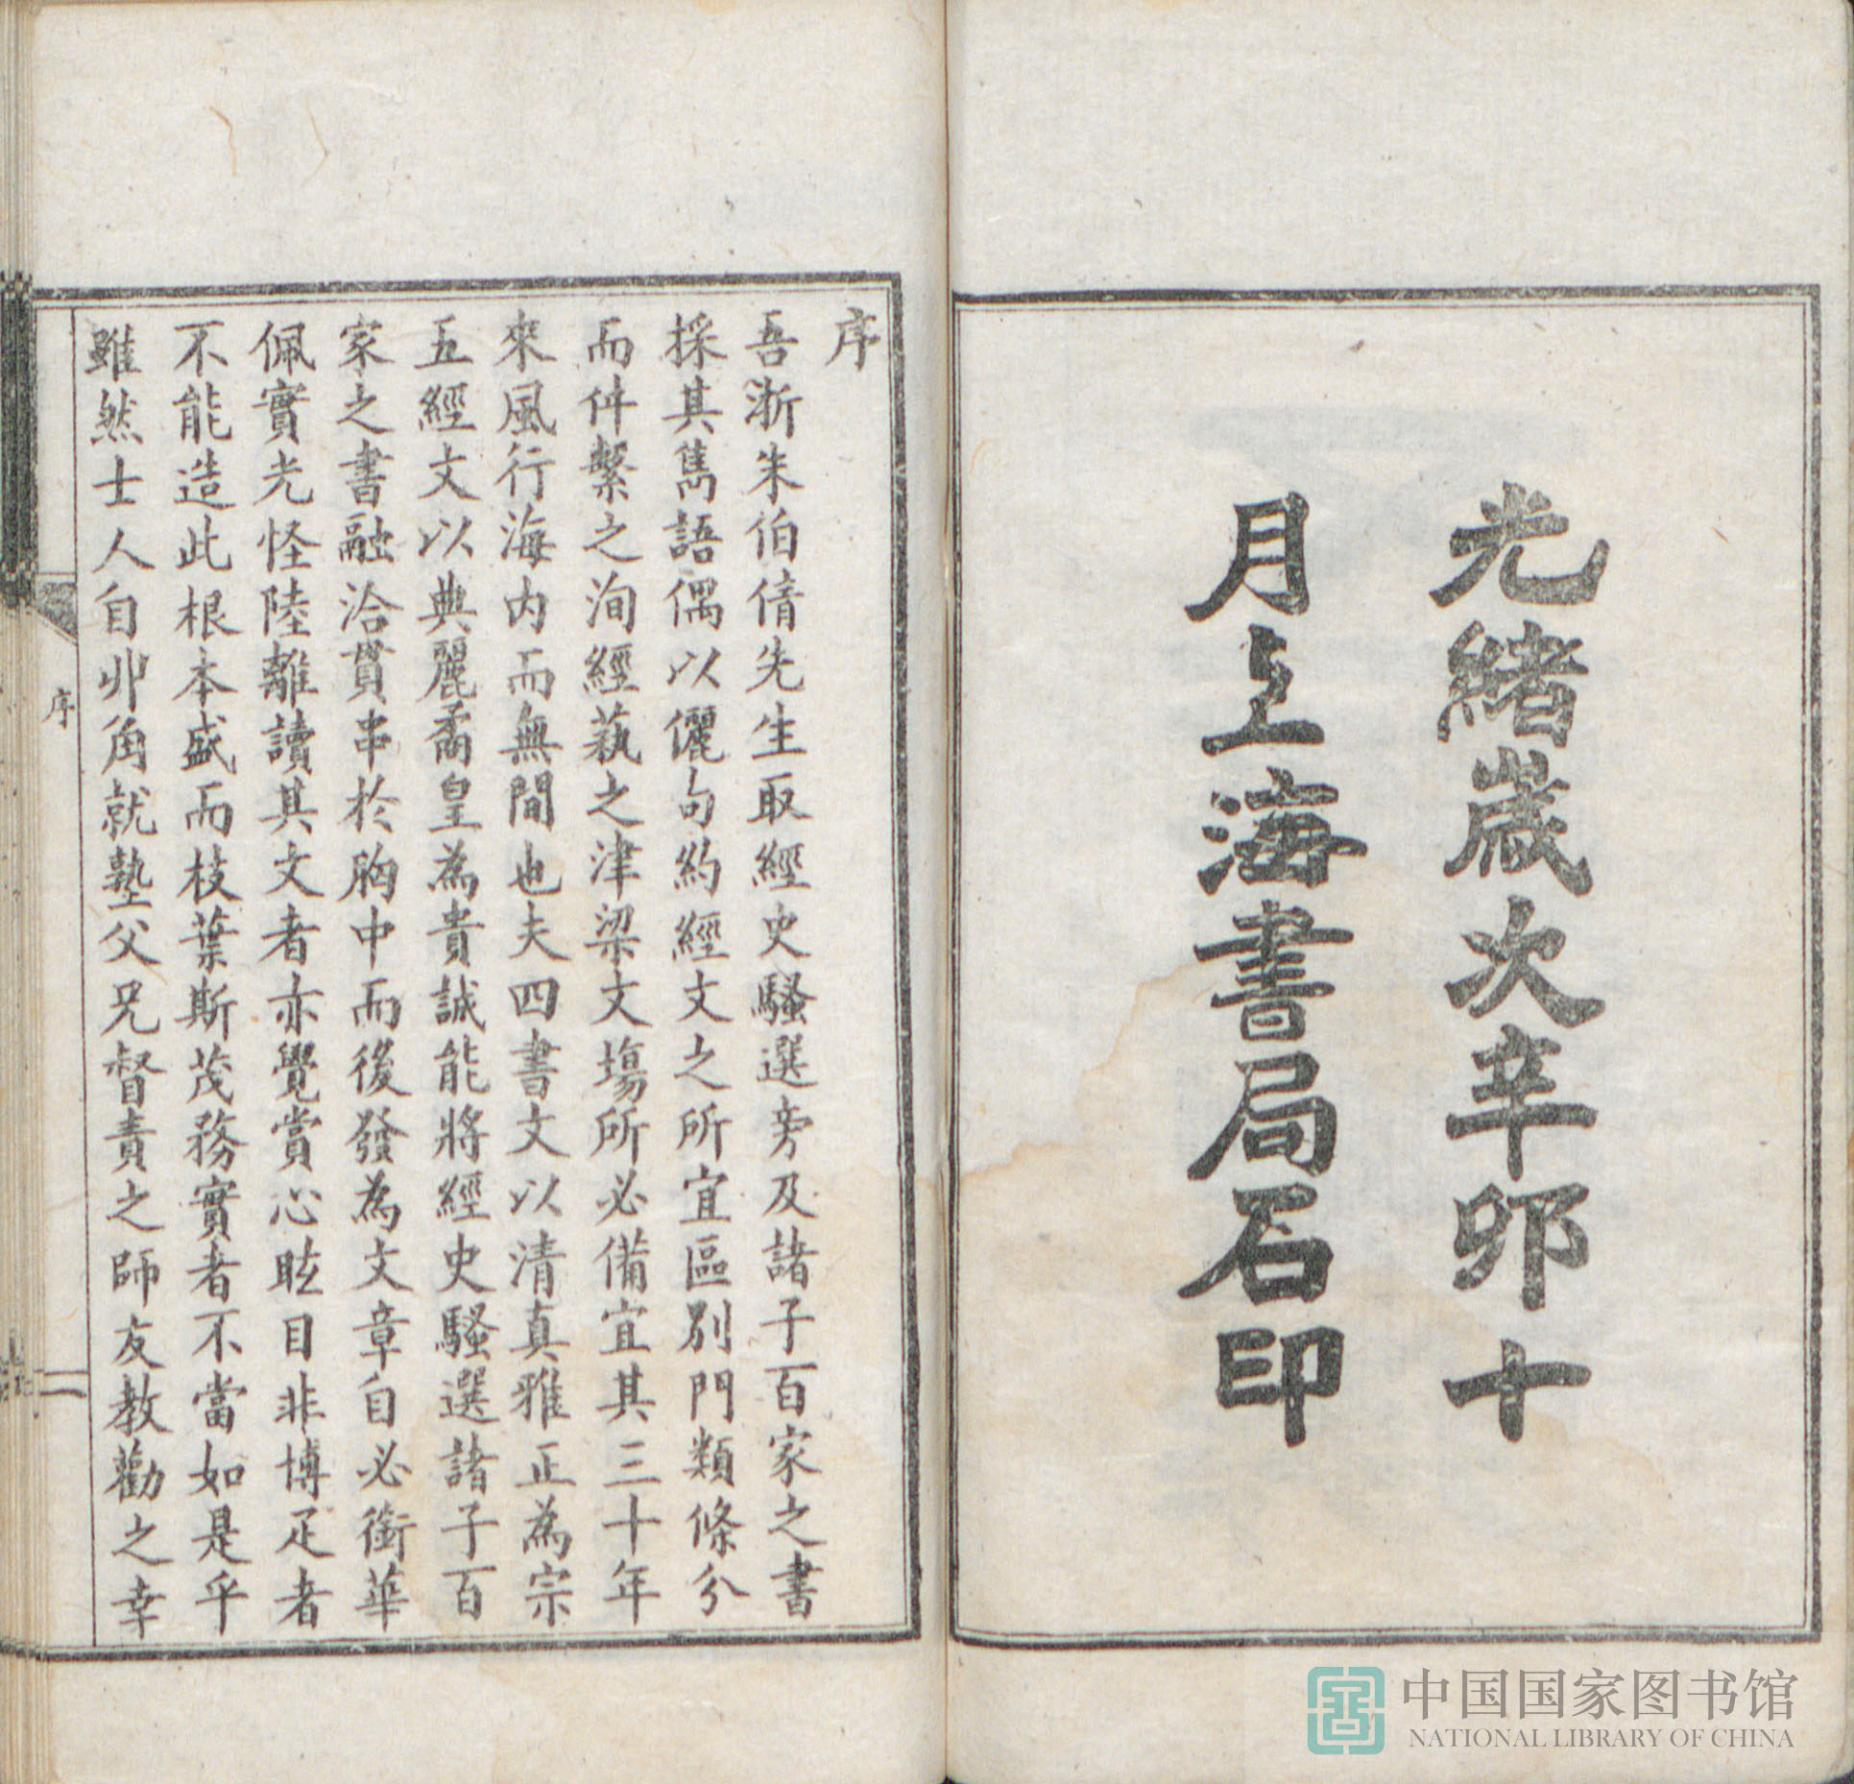 光緒歲次辛卯十
月上海書局石印
序
吾浙朱伯倩先生取經史騷選旁及諸子百家之書
採其雋語偶以儷句約經文之所宜區別門類條分
而件繫之洵經蓺之津梁文塲所必備宜其三十年
來風行海內而無間也夫四書文以清真雅正為宗
五經文以典麗矞皇為貴誠能將經史騷選諸子百
家之書融洽貫串於胸中而後發為文章自必銜華
佩實光怪陸離讀其文者亦覺賞心眩目非博疋者
不能造此根本盛而枝葉斯茂務實者不當如是乎
雖然士人自丱角就塾父兄督責之師友教勸之幸
序
一
中国国家图书馆
NATIONAL LIBRARY OF CHINA